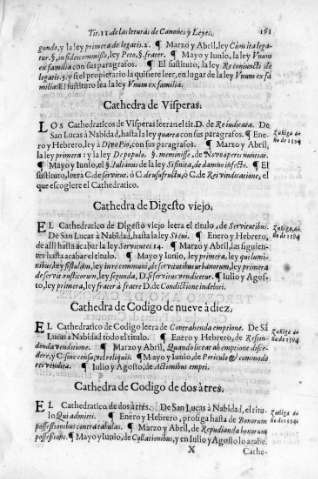 Tit. 22 de las leturas de Canones y Leyes. 181
gundo, y la ley primera de legatis. 2. ¶ Março y Abril, ley Cùm ita lega-
tur. §. in fideicommisso, ley Peto, §. fratre. ¶ Mayo y Iunio, la ley Vnum
ex familia con sus paragrafos. ¶ El sustituto, la ley Rei coniuncti de
legatis. 3. y si el proprietario la quisiere leer, en lugar de la ley Vnum ex fa-
milia. El sustituto lea la ley Vnum ex familia.
Cathedra de Visperas.
LOS Cathedraticos de Visperas leeran el tit. D. de Rei iudicata. De
San Lucas à Nabidad, hasta la ley quarta con sus paragrafos. ¶ Ene-
ro y Hebrero, ley à Diuo Pio, con sus paragrafos. ¶ Março y Abril,
la ley primera: y la De pupulo. §. meminisse, de Noui operis nuntiat.
¶ Mayo y Iunio, el §. Iulianus de la ley Si finita, de damno infecto. ¶ El
sustituto, leera C. de seruitut. ò C. de vsufructu, ò C. de Rei vindicatione, el
que escogiere el Cathedratico.
Cathedra de Digesto viejo.
EL Cathedratico de Digesto viejo leera el titulo, de Seruitutibus.
De San Lucas à Nabidad, hasta la ley Sicut. ¶ Enero y Hebrero,
de alli hasta acabar la ley Seruitutes 14. ¶ Março y Abril, las siguien-
tes hasta acabar el titulo. ¶ Mayo y Iunio, ley primera, ley qui lumini-
bus, ley si fistulam, ley inter communi, de seruitutibus vrbanorum, ley primera
de seruit. rusticorum, ley segunda, D. si seruitus vendicetur. ¶ Iulio y Agos-
to, ley primera, ley frater à fratre D. de Condictione indebiti.
Cathedra de Codigo de nueve à diez.
EL Cathedratico de Codigo leera de Contrahenda emptione. De Sã
Lucas à Nabidad todo el titulo. ¶ Enero y Hebrero, de Rescin-
denda venditione. ¶ Março y Abril, Quando liceat ab emptione disce-
dere, y C. sine censu, vel reliquis. ¶ Mayo y Iunio, de Periculo & commodo
rei venditæ. ¶ Iulio y Agosto, de Actionibus empti.
Cathedra de Codigo de dos à tres.
EL Cathedratico de dos à tres. De San Lucas à Nabidad, el titu-
lo Qui admitti. ¶ Enero y Hebrero, prosiga hasta de Bonorum
possessionibus contra tabulas. ¶ Março y Abril, de Repudianda bonorum
possessione. ¶ Mayo y Iunio, de Collationibus, y en Iulio y Agosto lo acabe.
X Cathe-